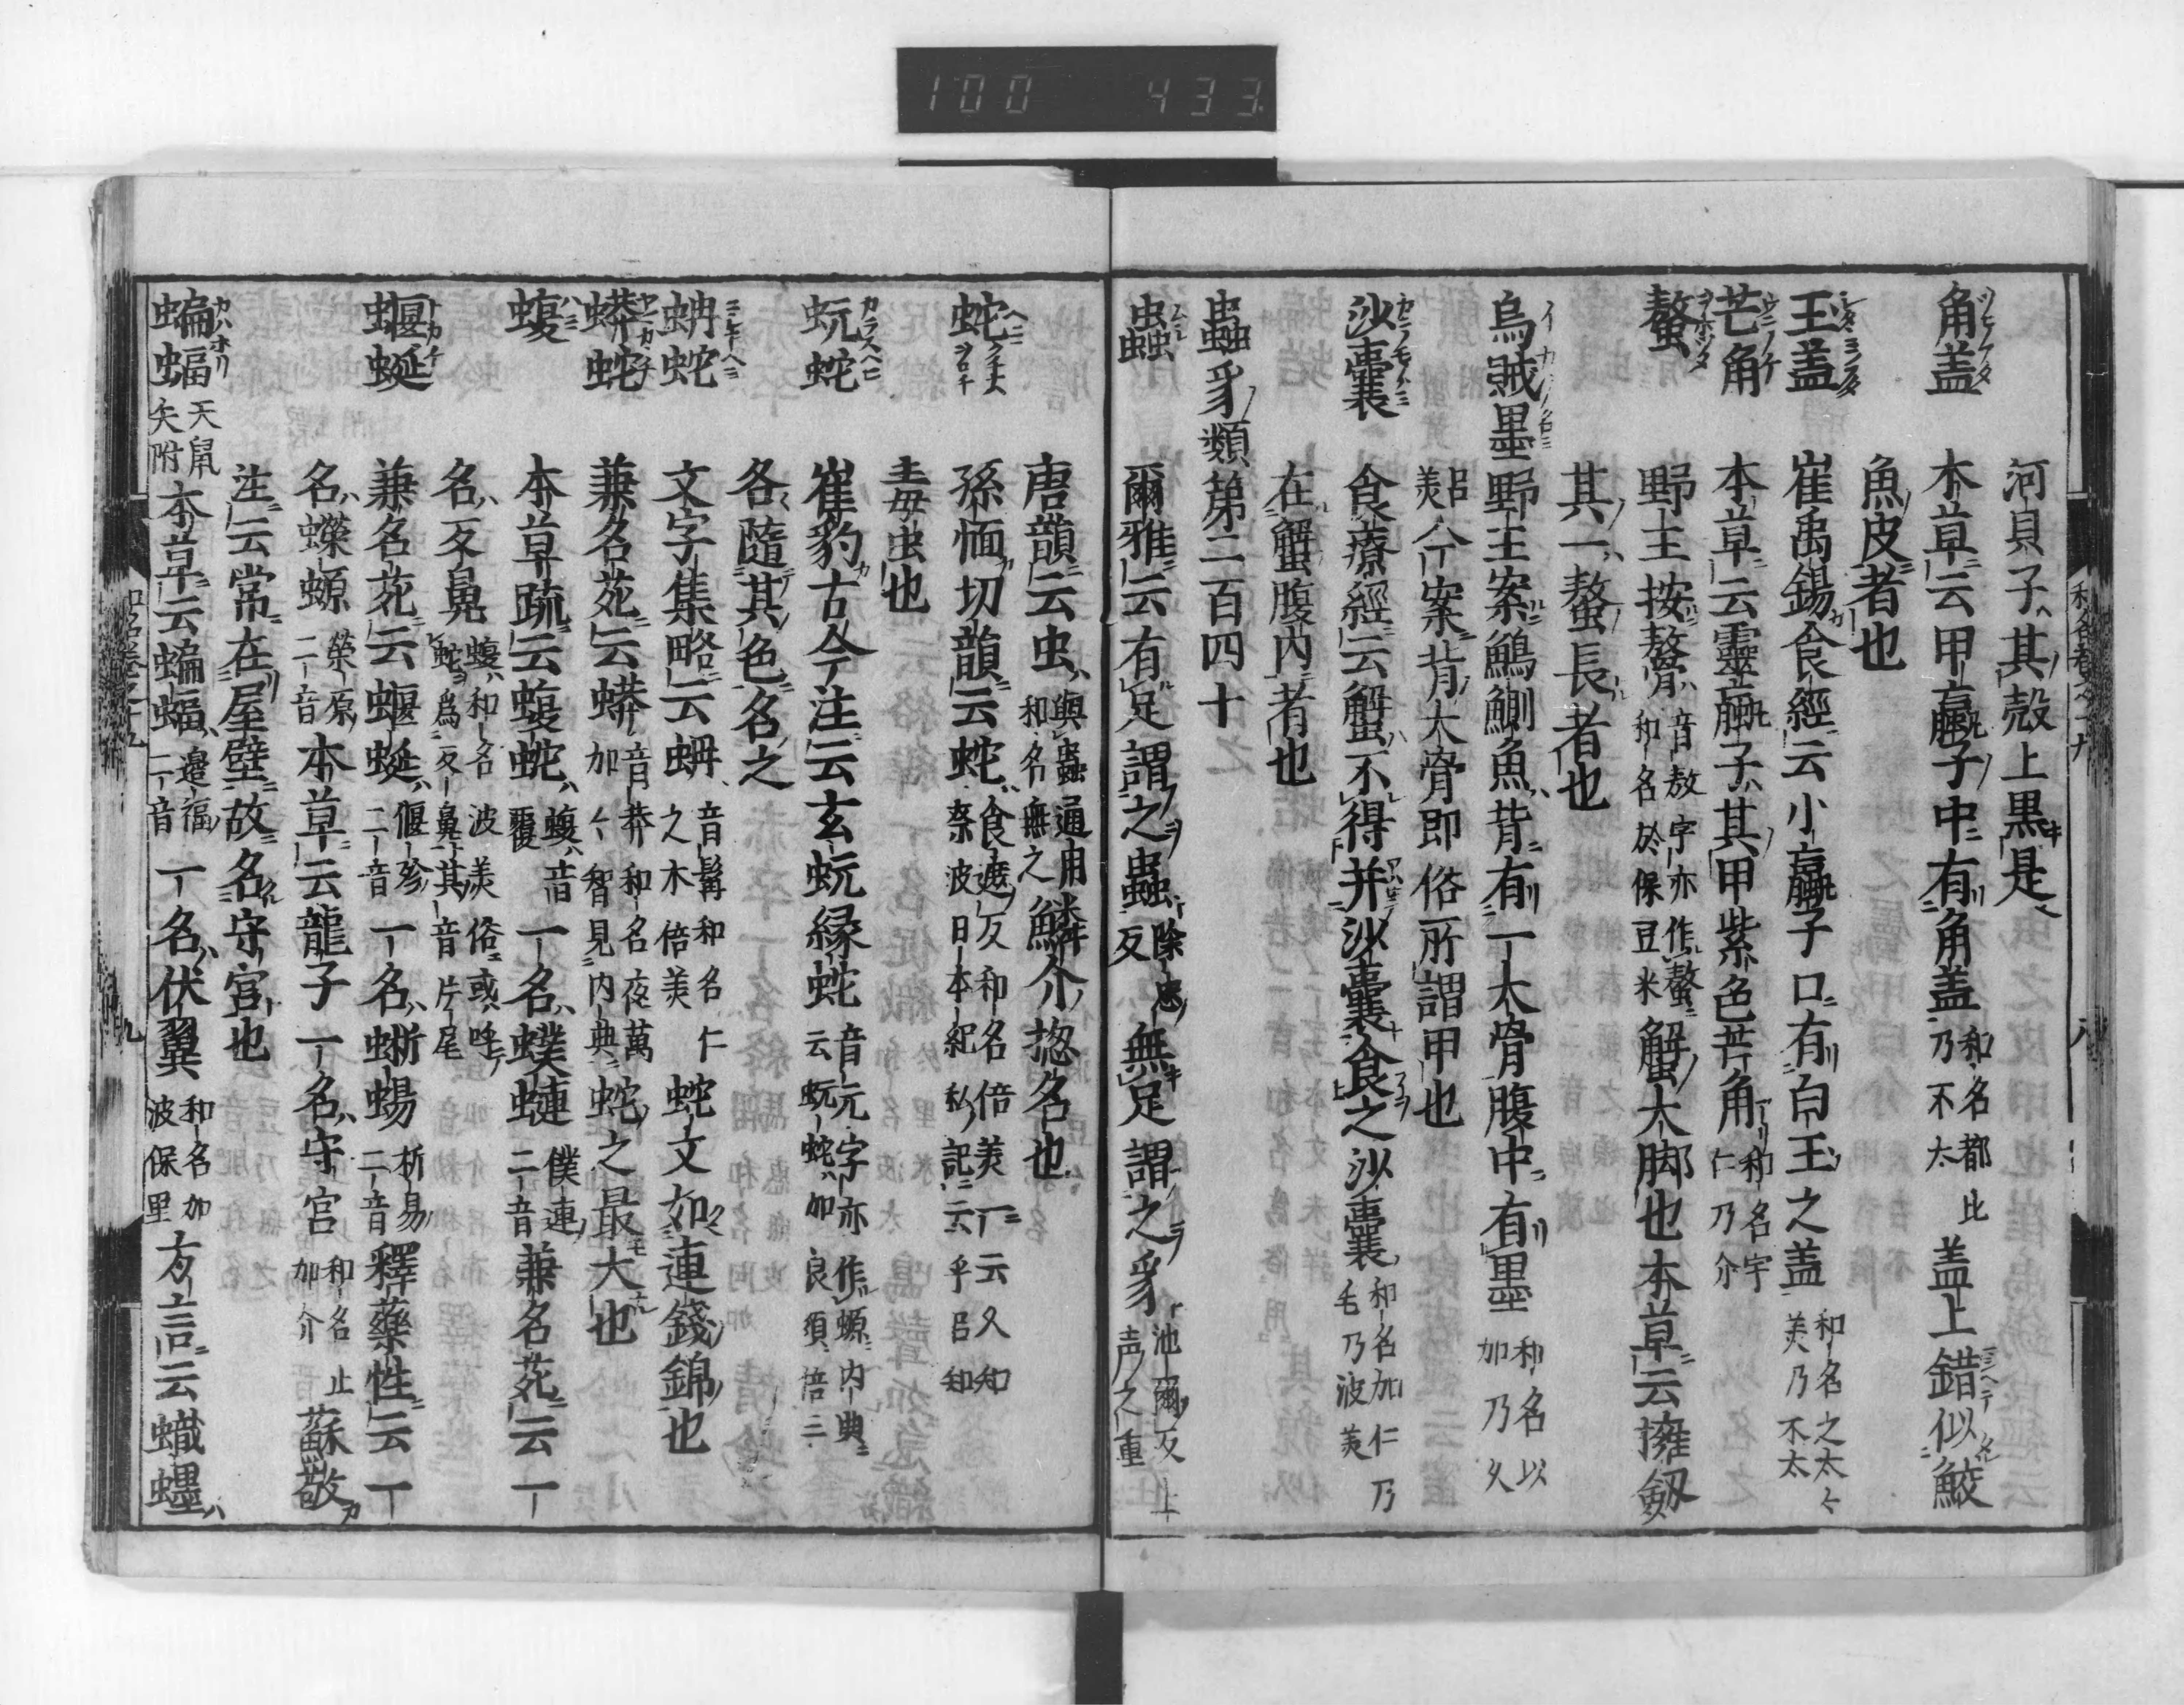 100 433
河貝子其殻上黒是
角盖 本草云甲蠃子中有角盖 和名都比乃不太 盖上錯似鮫
魚皮者也
玉盖 崔禹錫食經云小蠃子口有白玉之盖 和名之太々美乃不太
芒角 本草云靈蠃子其甲紫色芒角 和名宇仁乃介
螯 野王按螯 音敖字亦作螯和名於保豆米 蟹大脚也本草云擁劔
其一螯長者也
烏賊墨 野王案鰞鰂魚背有一大骨腹中有墨 和名以加乃久
呂美 今案背大骨即俗所謂甲也
沙嚢 食療經云蟹不得并沙嚢食之沙嚢 和名加仁乃毛乃波美
在蟹腹内者也
蟲豸類第二百四十
蟲 爾雅云有足謂之蟲 除忠反 無足謂之豸 池爾反上声之重
唐韻云虫 與蟲通用和名無之 鱗介惣名也
蛇 孫愐切韻云蛇 食遮反和名倍美一云久知奈波日本紀私記云乎呂知
毒虫也
蚖蛇 崔豹古今注云玄蚖緑蛇 音元字亦作螈内典云蚖蛇加良須倍三
各隨其色名之
蚺蛇 文字集略云蚺 音髯和名仁之木倍美 蛇文如連錢錦也
蟒蛇 兼名苑云蟒 音莽和名夜萬加々智見内典 蛇之最大也
蝮 本草疏云蝮蛇 蝮音覆 一名蟆蝀 僕連二音 兼名苑云一
名反鼻 蝮和名波美俗或呼蛇爲反鼻其音片尾
蝘蜒 兼名苑云蝘蜒 偃殄二音 一名蜥蜴 析易二音 釋藥性云一
名蠑螈 榮原二音 本草云龍子一名守宮 和名止加介 蘇敬
注云常在屋壁故名守宮也
蝙蝠 天鼠矢附 本草云蝙蝠 邊福二音 一名伏翼 和名加波保里 方言云蟙䘃